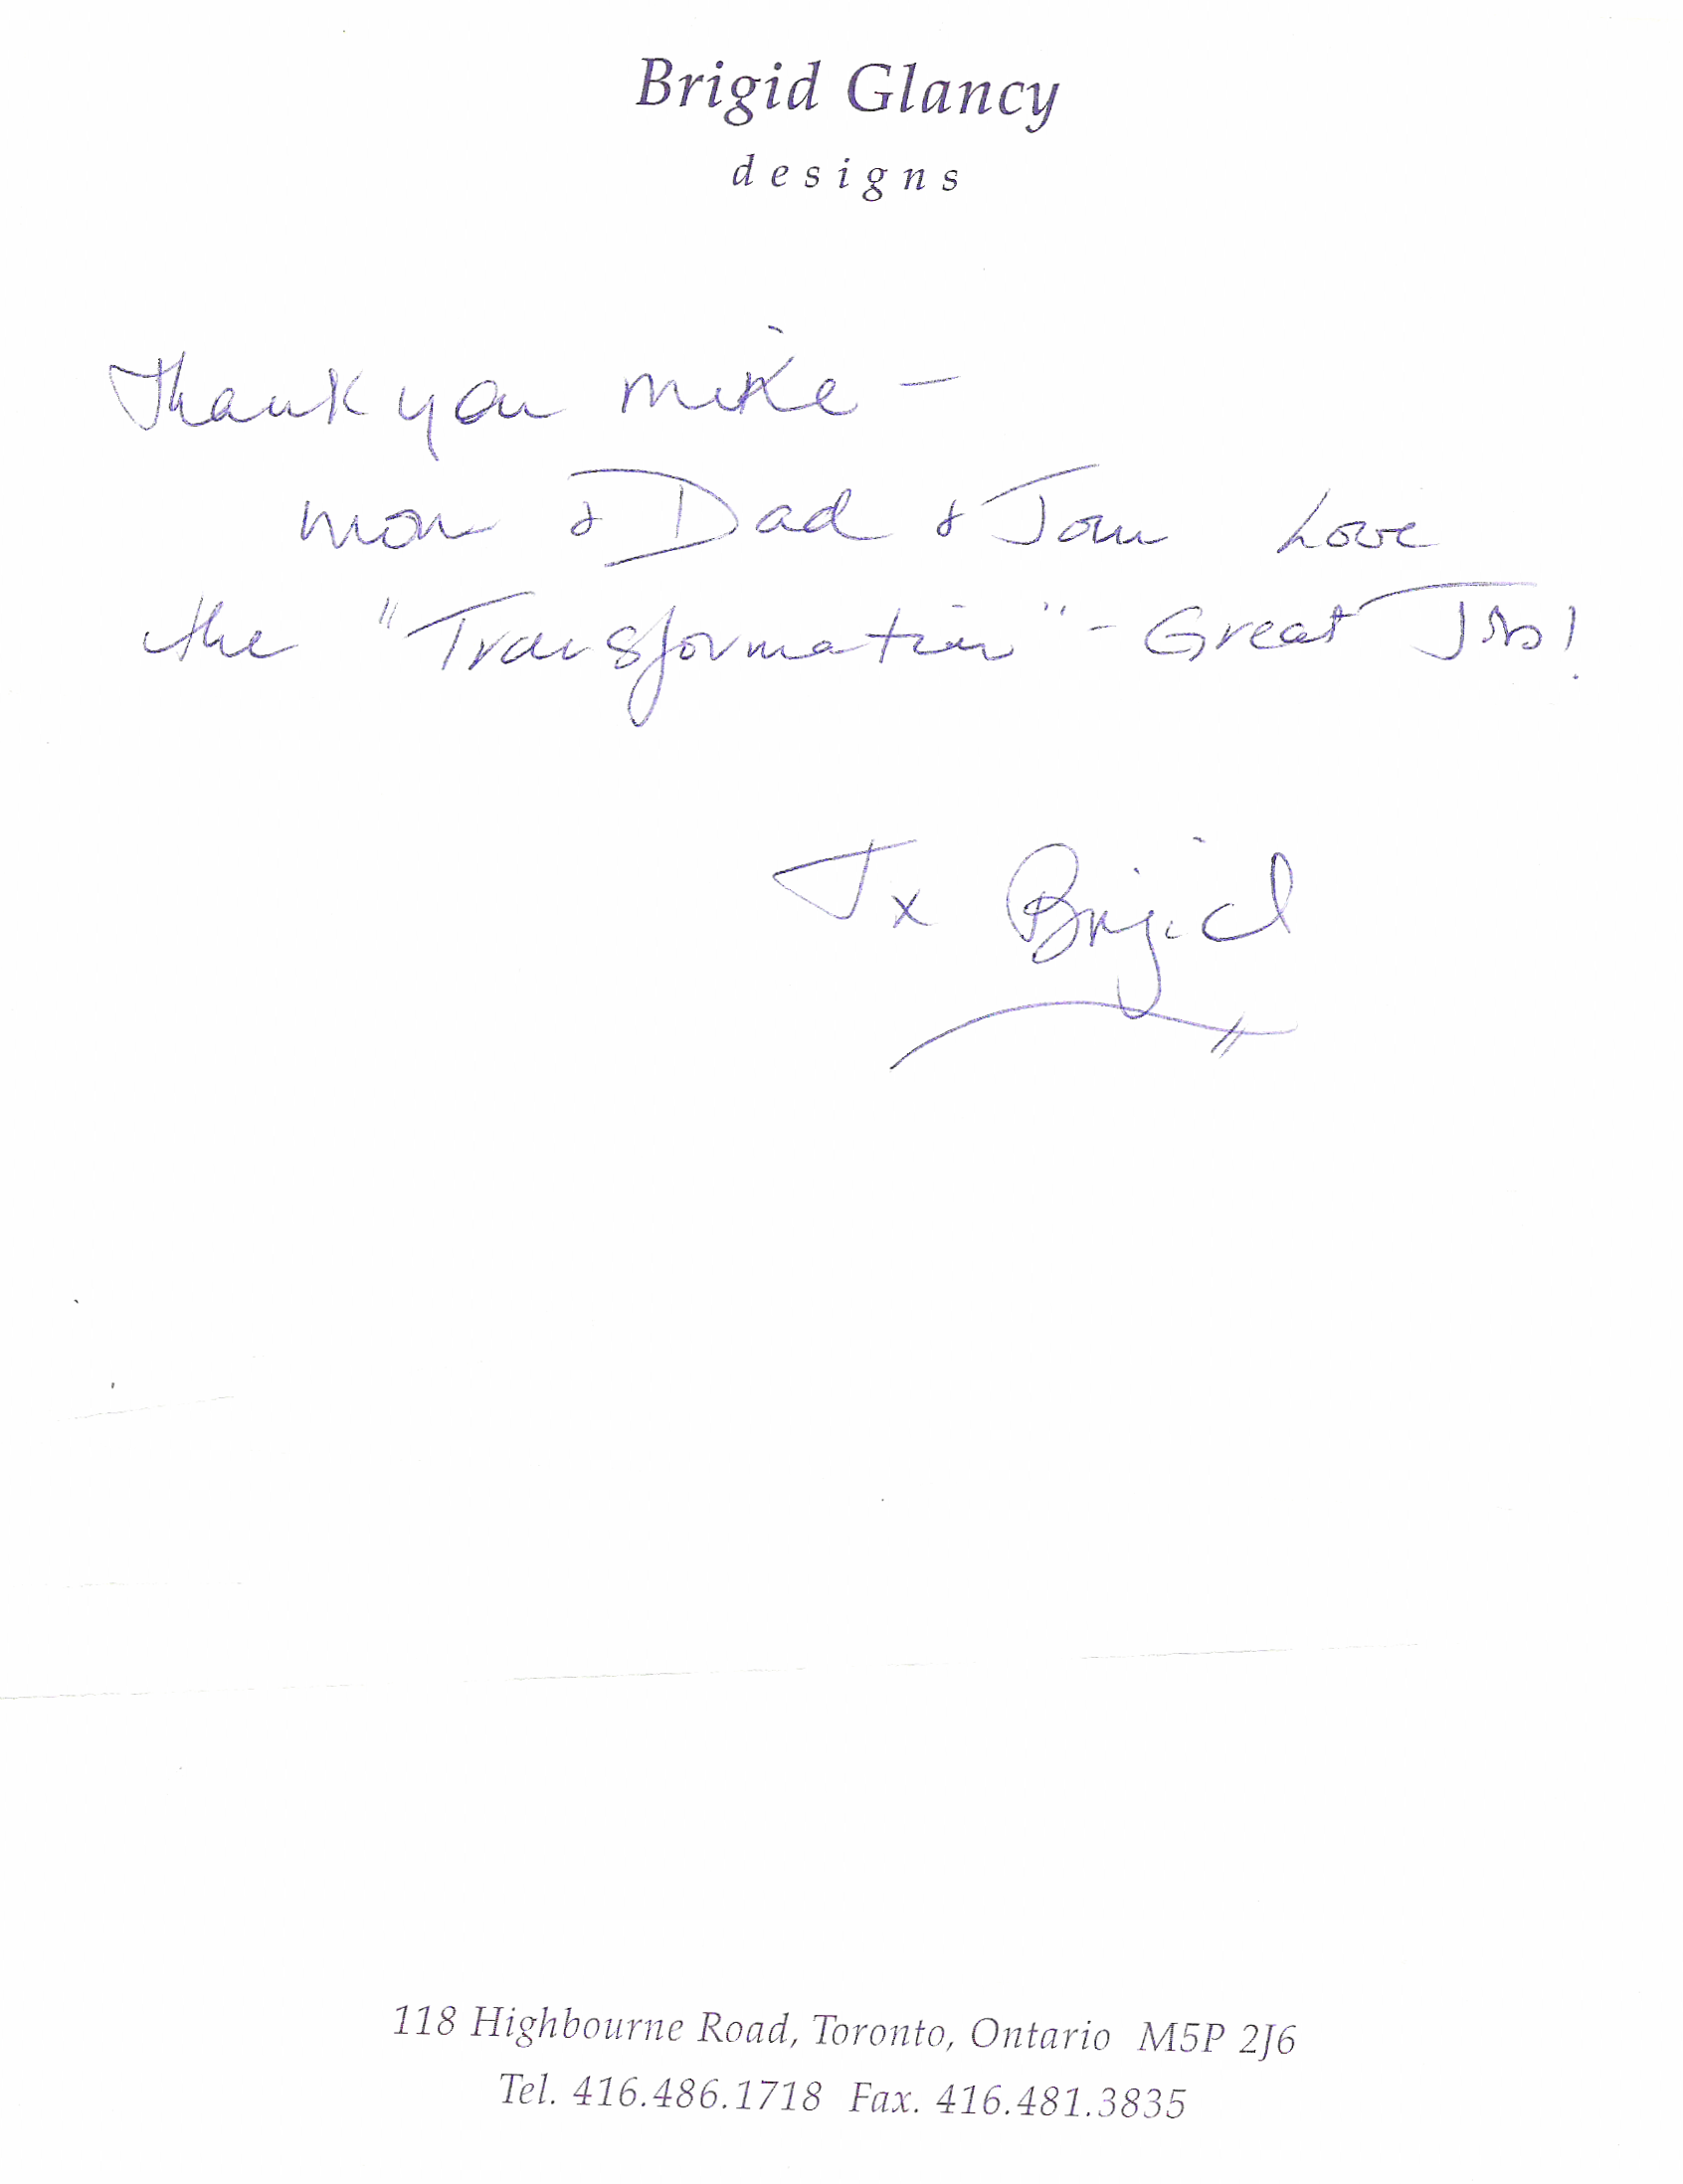 Brigid Glancy
designs
Thank you Mike –
Mom & Dad & Tom Love
the "Transformation" - Great Job!
Tx Brigid
118 Highbourne Road, Toronto, Ontario M5P 2J6
Tel. 416.486.1718 Fax. 416.481.3835